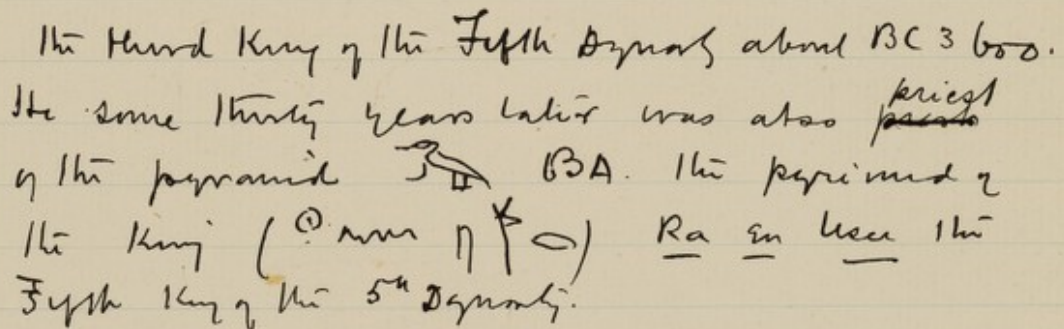 the third King of the Fifth Dynasty about BC 3600.
He some thirty years later was also priest
of the pyramid 𓅡 BA. The pyrimid of
the King (𓇳 𓈖 𓋴 𓄊 𓂋) Ra En User the
Fifth King of the 5th Dynasty.